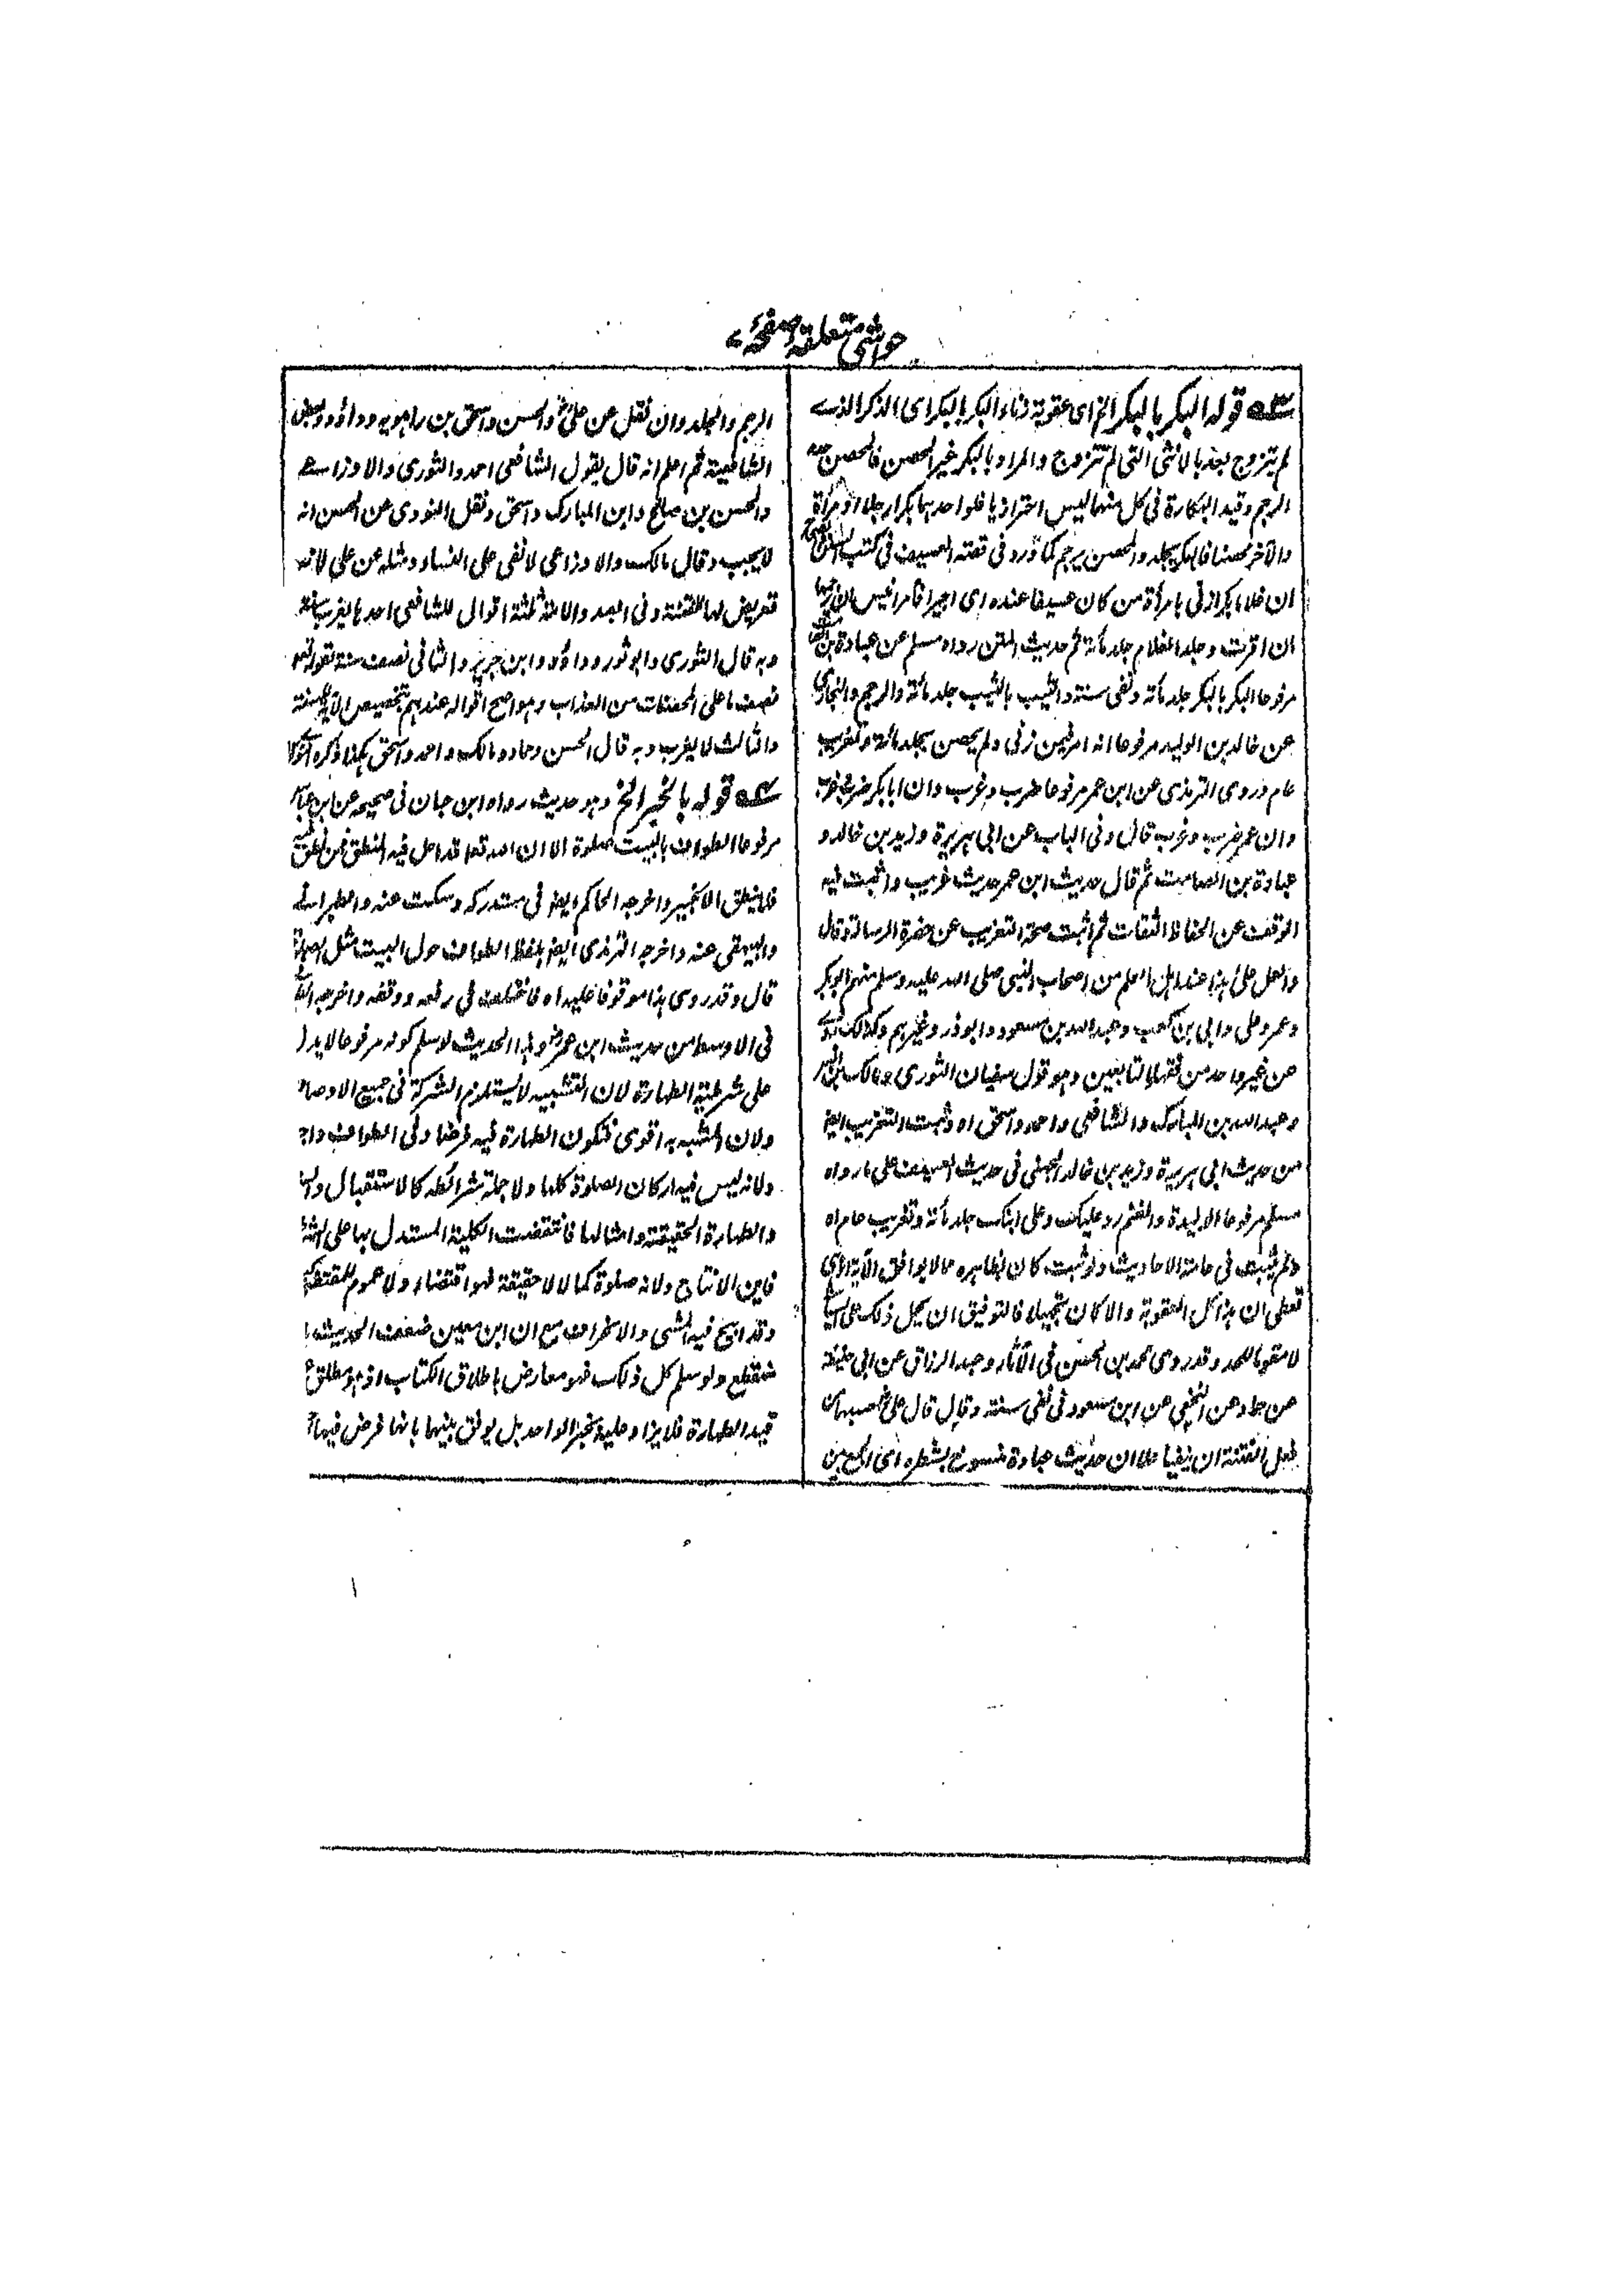 حواشی متعلقہ صفحۂ ۷
قوله البكر بالبكر الخ اى عقوبة زناء البكر بالبكر اى الذكر الذى
لم يتزوج بعد بالانثى التى لم تتزوج والمراد بالبكر غير المحصن فالمحصن حده
الرجم وقيد البكارة فى كل منهما ليس احترازيا فلو احدهما بكرا رجلا او مرأة
والآخر محصنا فالبكر يجلد والمحصن يرجم كما ورد فى قصة العسيف فى كتب
ان غلاما بكرا زنى بامرأة من كان عسيفا عنده اى اجيرا فامر انيس ان يرجمها
ان اقرت وجلد الغلام جلد مائة ثم حديث المتن رواه مسلم عن عبادة بن
مرفوعا البكر بالبكر جلد مائة ونفى سنة والثيب بالثيب جلد مائة والرجم والبخارى
عن خالد بن الوليد مرفوعا انه امر فيمن زنى ولم يحصن بجلد مائة وتغريب
عام وروى الترمذى عن ابن عمر مرفوعا ضرب وغرب وان ابا بكر ضرب وغرب
وان عمر ضرب وغرب قال وفى الباب عن ابى هريرة وزيد بن خالد و
عبادة بن الصامت ثم قال حديث ابن عمر حديث غريب واثبت فيه
الوقف عن الحفاظ الثقات ثم اثبت صحة التغريب عن حضرة الرسالة وقال
والعمل على هذا عند اهل العلم من اصحاب النبى صلى الله عليه وسلم منهم ابو بكر
وعمر وعلى وابى بن كعب وعبد الله بن مسعود وابو ذر وغيرهم وكذلك روى
عن غير واحد من فقهاء التابعين وهو قول سفيان الثورى ومالك بن انس
وعبد الله بن المبارك والشافعى واحمد واسحق اه وثبت التغريب ايضا
من حديث ابى هريرة وزيد بن خالد الجهنى فى حديث العسيف على ما رواه
مسلم مرفوعا الوليدة والغنم رد عليك وعلى ابنك جلد مائة وتغريب عام اه
ولم يثبت فى عامة الاحاديث ولو ثبت كان بظاهره مما لا يوافق الآية التى
تعطى ان هذا كل العقوبة والا كان تجهيلا فالتوفيق ان يحمل ذلك على
لا مقوما للحد وقد روى محمد بن الحسن فى الآثار وعبد الرزاق عن ابى حنيفة
عن حماد عن النخعى عن ابن مسعود فى نفى سنة وقال قال على حسبهما من
الفتنة ان ينفيا علا ان حديث عبادة منسوخ بشطره اى الجمع بين
الرجم والجلد وان نقل عن على والحسن واسحق بن راهويه وداؤد وبعض
الشافعية ثم اعلم انه قال بقول الشافعى احمد والثورى والاوزاعى
والحسن بن صالح وابن المبارك واسحق ونقل النووى عن الحسن انه
لا يجب وقال مالك والاوزاعى لا نفى على النساء ومثله عن على لانه
تعريض لها للفتنة وفى العبد والامة ثلثة اقوال للشافعى احدها يغرب سنة
وبه قال الثورى وابو ثور وداؤد وابن جرير والثانى نصف سنة لقوله تعالى
نصف ما على المحصنات من العذاب وهو اصح اقواله عندهم بتخصيص الآية للسنة
والثالث لا يغرب وبه قال الحسن وحماد ومالك واحمد واسحق هكذا ذكره
قوله بالخبر الخ وهو حديث رواه ابن حبان فى صحيحه عن ابن عباس
مرفوعا الطواف بالبيت صلوة الا ان الله تعالى قد احل فيه المنطق فمن نطق
فلا ينطق الا بخير واخرجه الحاكم ايضا فى مستدركه وسكت عنه والطبرانى
والبيهقى عنه واخرجه الترمذى ايضا بلفظ الطواف حول البيت مثل الصلوة
قال وقد روى هذا موقوفا عليه اه فاختلف فى رفعه ووقفه واخرجه
فى الاوسط من حديث ابن عمر وهذا الحديث لو سلم كونه مرفوعا لا يدل
على شرطية الطهارة لان التشبيه لا يستلزم الشركة فى جميع الاوصاف
ولان المشبه به اقوى فتكون الطهارة فيه فرضا وفى الطواف
ولانه ليس فيه اركان الصلوة كلها ولا جملة شرائطه كالاستقبال
والطهارة الحقيقة وامثالها فانتقضت الكلية المستدل بها على
فاين الانتاج ولانه صلوة كمالا لا حقيقة فهو اقتضاء ولا عموم للمقتضى
وقد ابيح فيه المشى والانحراف مع ان ابن معين ضعف الحديث
منقطع ولو سلم كل ذلك فهو معارض باطلاق الكتاب اذ هو مطلق
قيد الطهارة فلا يزاد عليه بخبر الواحد بل يوفق بينهما بانها فرض فيها